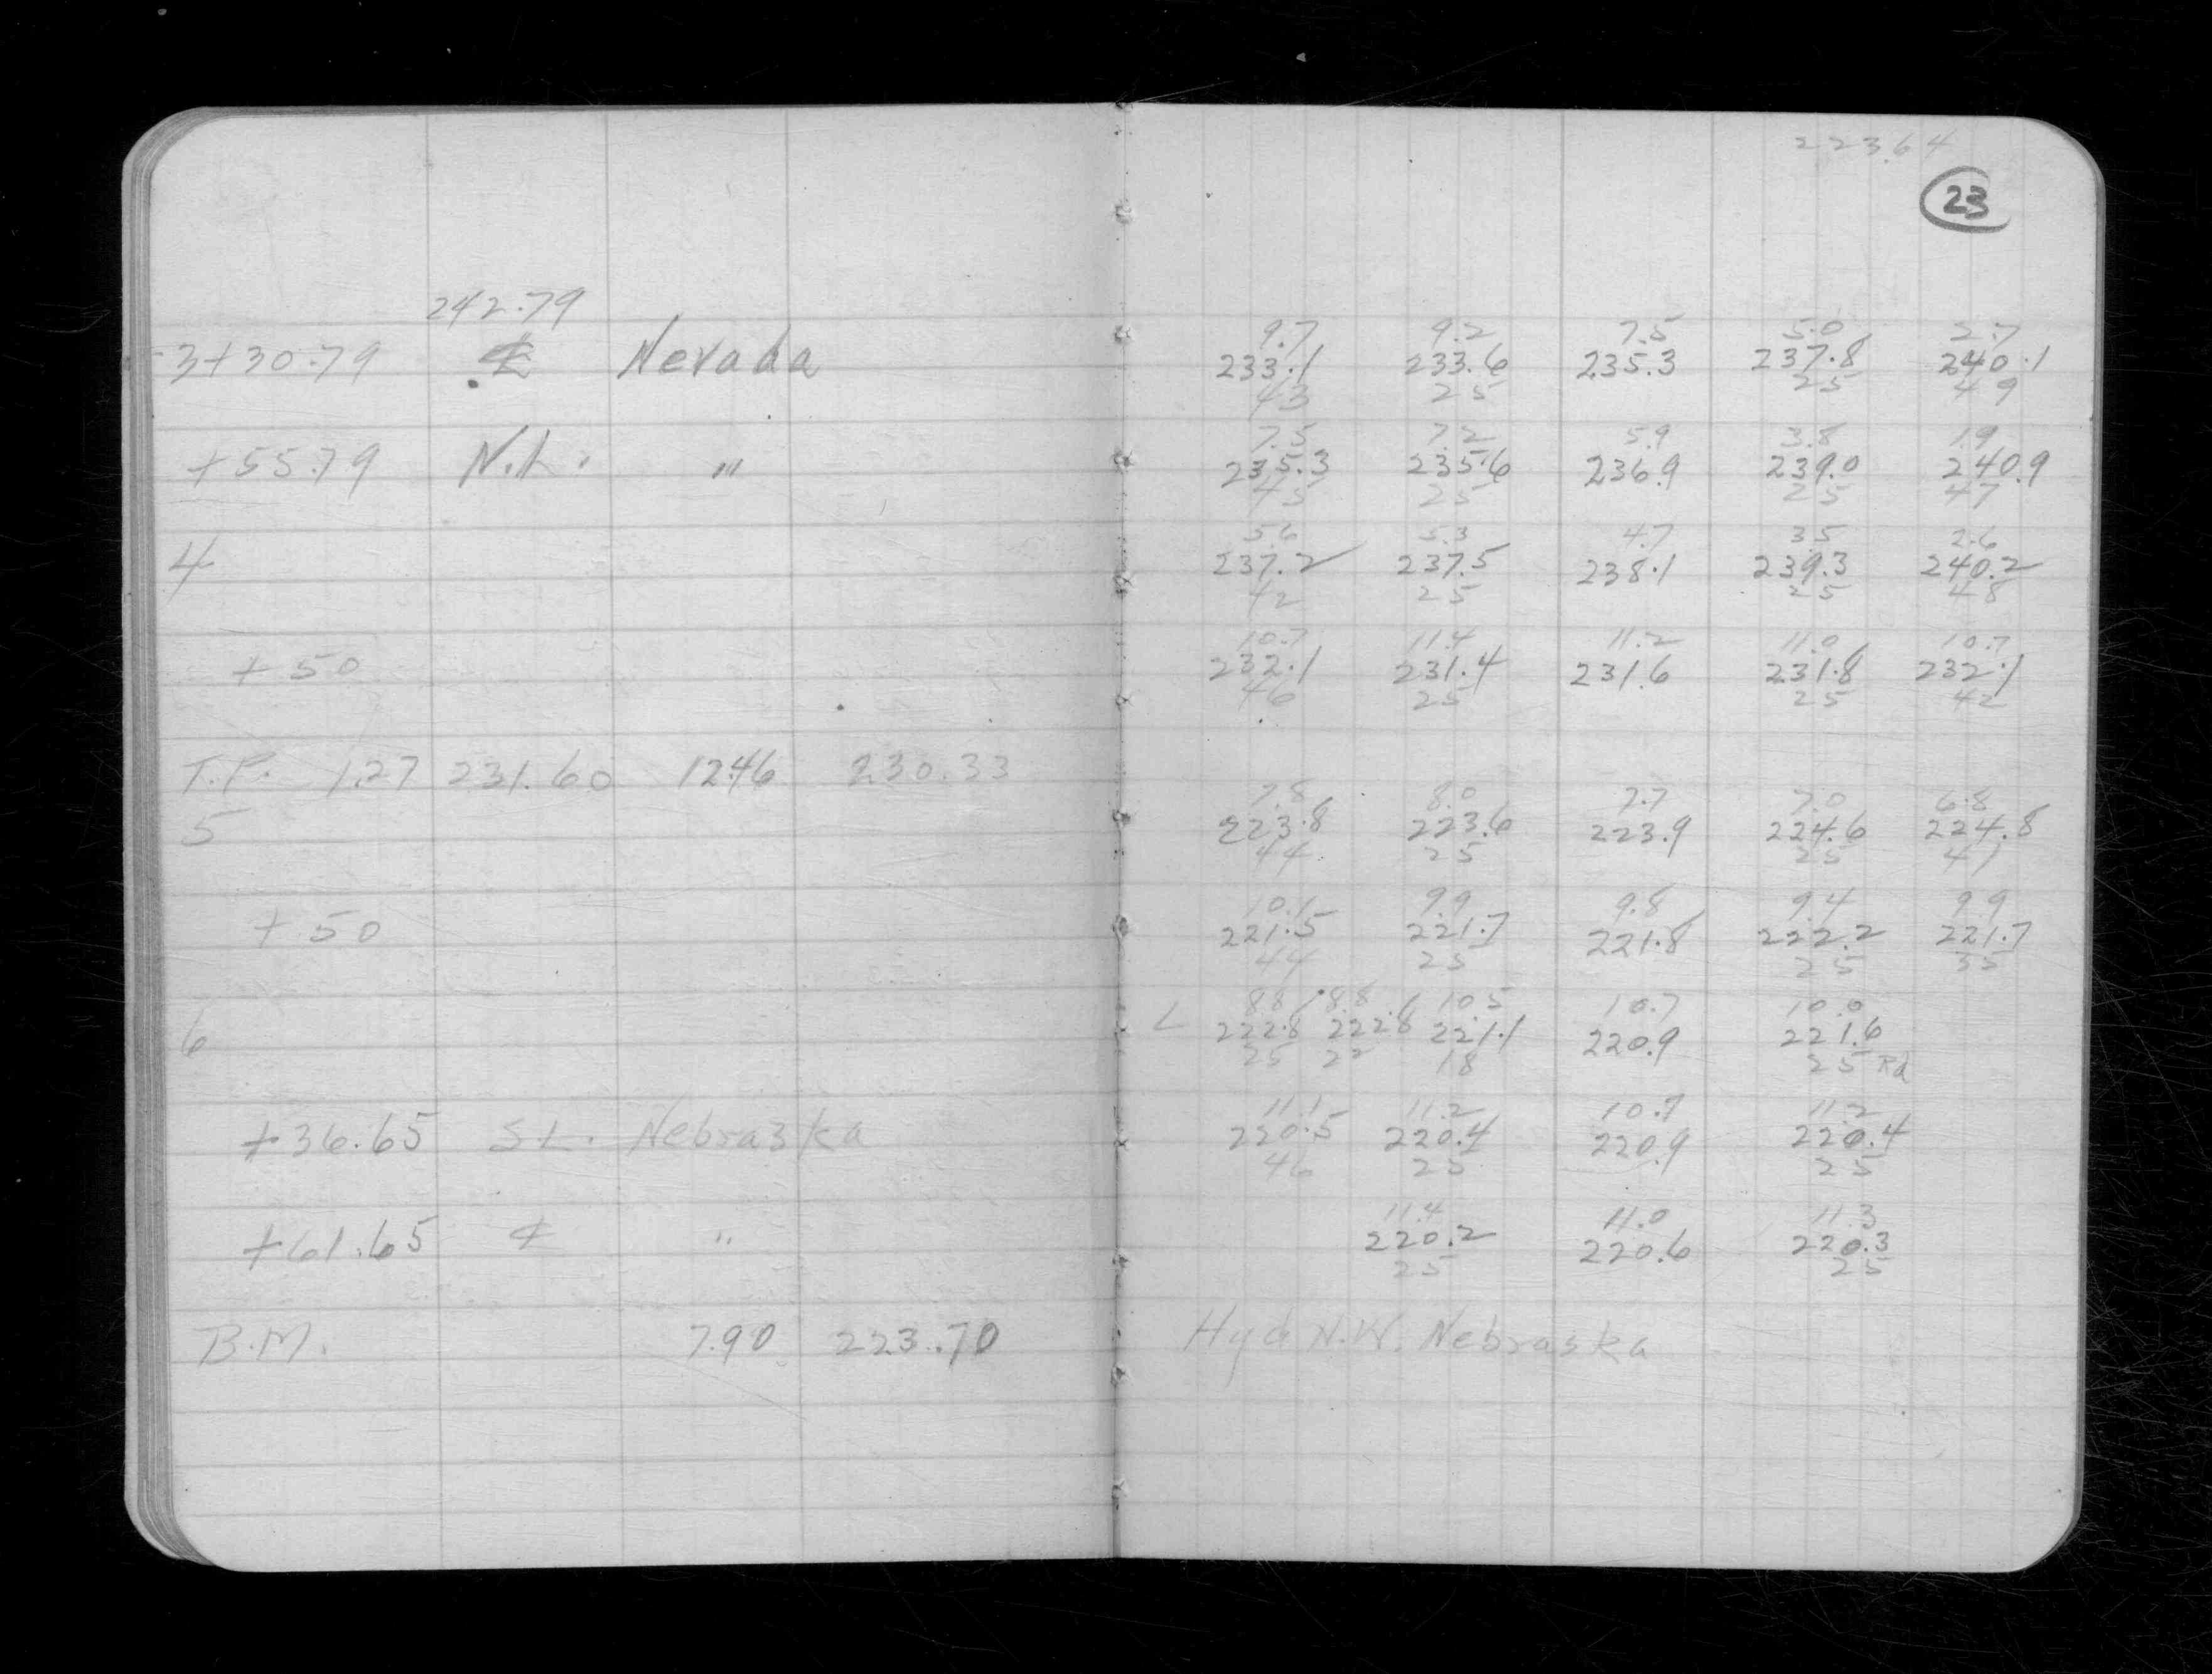 242.79
3+30.79 ℄ Nevada
+55.79 N.L. "
4
+50
T.P. 1.27 231.60 12.46 230.33
5
+50
6
+36.65 S.L. Nebraska
+61.65 ℄ "
B.M. 7.90 223.70
223.64
23
9.7 9.2 7.5 5.0 2.7
233.1 233.6 235.3 237.8 240.1
43 25 25 49
7.5 7.2 5.9 3.8 1.9
235.3 235.6 236.9 239.0 240.9
45 25 25 47
5.6 5.3 4.7 3.5 2.6
237.2 237.5 238.1 239.3 240.2
42 25 25 48
10.7 11.4 11.2 11.0 10.7
232.1 231.4 231.6 231.8 232.1
46 25 25 42
7.8 8.0 7.7 7.0 6.8
223.8 223.6 223.9 224.6 224.8
44 25 25 41
10.1 9.9 9.8 9.4 9.9
221.5 221.7 221.8 222.2 221.7
44 25 25 35
8.8 8.8 10.5 10.7 10.0
L 222.8 222.8 221.1 220.9 221.6
25 22 18 25 Rd
11.1 11.2 10.7 11.2
220.5 220.4 220.9 220.4
46 25 25
11.4 11.0 11.3
220.2 220.6 220.3
25 25
Hyd N.W. Nebraska